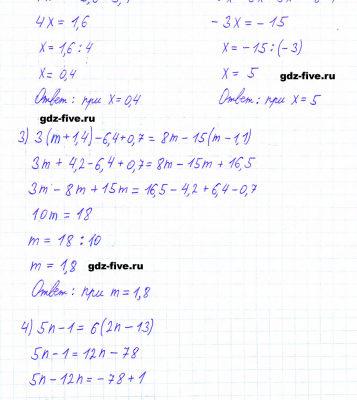 4x = 1,6
x = 1,6 : 4
x = 0,4
Ответ: при x = 0,4
gdz-five.ru
- 3x = - 15
x = - 15 : (-3)
x = 5
gdz-five.ru
Ответ: при x = 5
3) 3(m + 1,4) - 6,4 + 0,7 = 8m - 15(m - 1,1)
3m + 4,2 - 6,4 + 0,7 = 8m - 15m + 16,5
3m - 8m + 15m = 16,5 - 4,2 + 6,4 - 0,7
10m = 18
m = 18 : 10
m = 1,8
gdz-five.ru
Ответ: при m = 1,8
4) 5n - 1 = 6(2n - 13)
5n - 1 = 12n - 78
5n - 12n = - 78 + 1